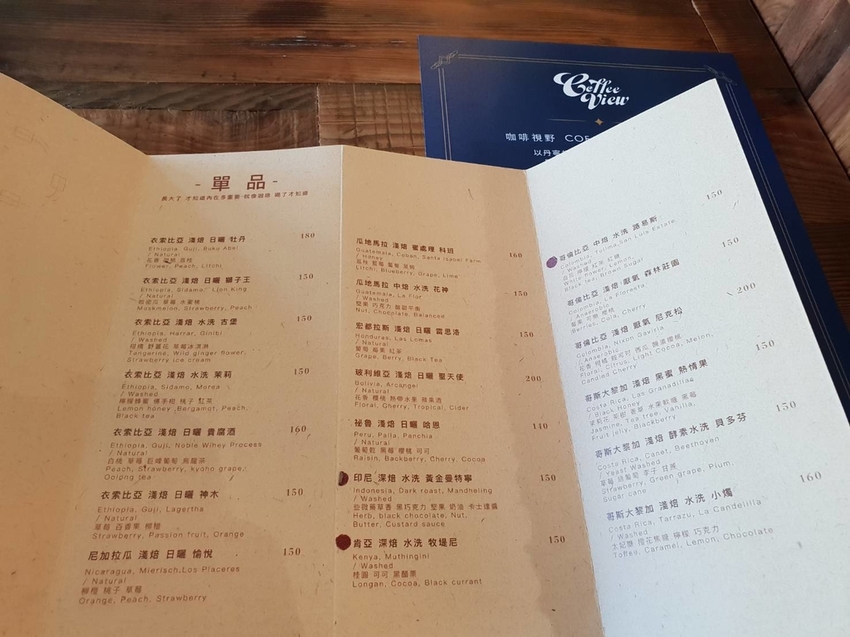 Coffee
View
咖啡視野 CO
以丹寧
- 單 品 -
衣索比亞 淺焙 日曬 牡丹 180
Ethiopia, Guji, Buku Abel
/ Natural
花香 蜜桃 荔枝
Flower, Peach, Litchi
衣索比亞 淺焙 日曬 獅子王 150
Ethiopia, Sidamo, Lion King
/ Natural
哈密瓜 草莓 水蜜桃
Muskmelon, Strawberry, Peach
衣索比亞 淺焙 水洗 古堡 150
Ethiopia, Harrar, Ginibi
/ Washed
柑橘 野薑花 草莓冰淇淋
Tangerine, Wild ginger flower,
Strawberry ice cream
衣索比亞 淺焙 水洗 茉莉 150
Ethiopia, Sidamo, Murea
/ Washed
檸檬蜂蜜 佛手柑 桃子 紅茶
Lemon honey, Bergamot, Peach,
Black tea
衣索比亞 淺焙 日曬 貴腐酒 160
Ethiopia, Guji, Noble Wihey Process
/ Natural
白桃 草莓 巨峰葡萄 烏龍茶
Peach, Strawberry, kyoho grape,
Oolong tea
衣索比亞 淺焙 日曬 神木 150
Ethiopia, Guji, Lagertha
/ Natural
草莓 百香果 柳橙
Strawberry, Passion fruit, Orange
尼加拉瓜 淺焙 日曬 愉悅 150
Nicaragua, Mierisch, Los Placeres
/ Natural
柳橙 桃子 草莓
Orange, Peach, Strawberry
瓜地馬拉 淺焙 蜜處理 科班 160
Guatemala, Coban, Santa Isabel Farm
/ Honey
荔枝 藍莓 葡萄 萊姆
Litchi, Blueberry, Grape, Lime
瓜地馬拉 中焙 水洗 花神 150
Guatemala, La Flor
/ Washed
堅果 巧克力 酸甜平衡
Nut, Chocolate, Balanced
宏都拉斯 淺焙 日曬 雷思洛 150
Honduras, Las Lomas
/ Natural
葡萄 莓果 紅茶
Grape, Berry, Black Tea
玻利維亞 淺焙 日曬 聖天使 200
Bolivia, Arcangel
/ Natural
花香 櫻桃 熱帶水果 蘋果酒
Floral, Cherry, Tropical, Cider
祕魯 淺焙 日曬 哈恩 140
Peru, Palla, Panchia
/ Natural
葡萄乾 黑莓 櫻桃 可可
Raisin, Backberry, Cherry, Cocoa
印尼 深焙 水洗 黃金曼特寧 150
Indonesia, Dark roast, Mandheling
/ Washed
些微藥草香 黑巧克力 堅果 奶油 卡士達醬
Herb, black chocolate, Nut,
Butter, Custard sauce
肯亞 深焙 水洗 牧堤尼 150
Kenya, Muthingini
/ Washed
桂圓 可可 黑醋栗
Longan, Cocoa, Black currant
哥倫比亞 中焙 水洗 路易斯 150
Colombia, Tolima, San Luis Estate
/ Washed
Black tea, Brown Sugar
哥倫比亞 淺焙 厭氧 森林莊園 150
Colombia, La Floresta
/ Anaerobic
莓果 可樂 櫻桃
Berries, Cola, Cherry
哥倫比亞 淺焙 厭氧 尼克松 200
Colombia, Nixon Gaviria
/ Anaerobic
Floral, Citrus, Light Cocoa, Melon,
Candied Cherry
哥斯大黎加 淺焙 黑蜜 熱情果 150
Costa Rica, Las Granadillas
/ Black Honey
Jasmine, Tea tree, Vanilla,
Fruit juice, Blackberry
哥斯大黎加 淺焙 酵素水洗 貝多芬 150
Costa Rica, Canet, Beethoven
/ Yeast Washed
草莓 綠葡萄 李子 甘蔗
Strawberry, Green grape, Plum,
Sugar cane
哥斯大黎加 淺焙 水洗 小燭 160
Costa Rica, Tarrazu, La Candelilla
/ Washed
太妃糖 櫻花焦糖 檸檬 巧克力
Toffee, Caramel, Lemon, Chocolate